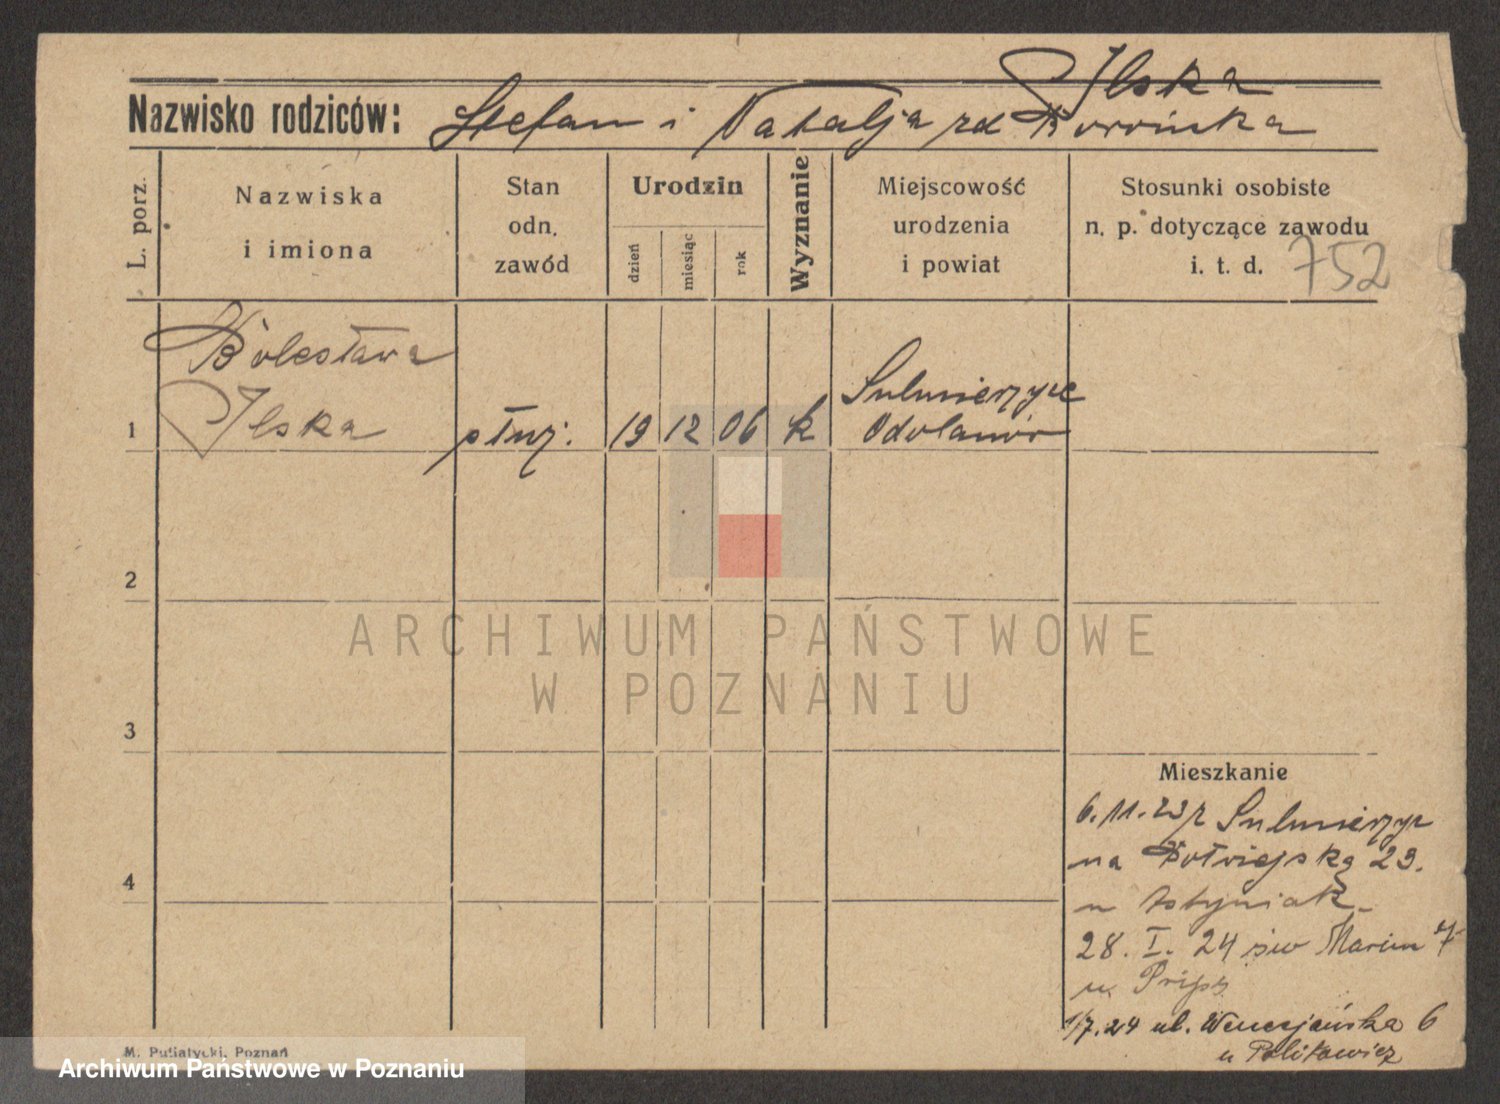 Ilska
Nazwisko rodziców: Stefan i Natalja zd
L. porz.
Nazwiska
i imiona
Stan
odn.
zawód
Urodzin
dzień
miesiąc
rok
Wyznanie
Miejscowość
urodzenia
i powiat
Stosunki osobiste
n. p. dotyczące zawodu
i. t. d. 752
Bolesława
Ilska
1 służ. 19 12 06 k
Sulmierzyce
Odolanów
2
ARCHIWUM PAŃSTWOWE
W POZNANIU
3
Mieszkanie
6.11.23 z Sulmierzyc
na 23.
4
u
28. I. 24 św Marcin
u
1/7.24 ul. Wenecjańska 6
u Politowicz
M. Putiatycki, Poznań
Archiwum Państwowe w Poznaniu